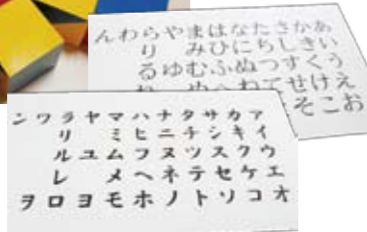 んわらやまはなたさかあ
り みひにちしきい
るゆむふぬつすくう
へねてせけえ
そこお
ンワラヤマハナタサカア
リ ミヒニチシキイ
ルユムフヌツスクウ
レ メヘネテセケエ
ヲロヨモホノトソコオ